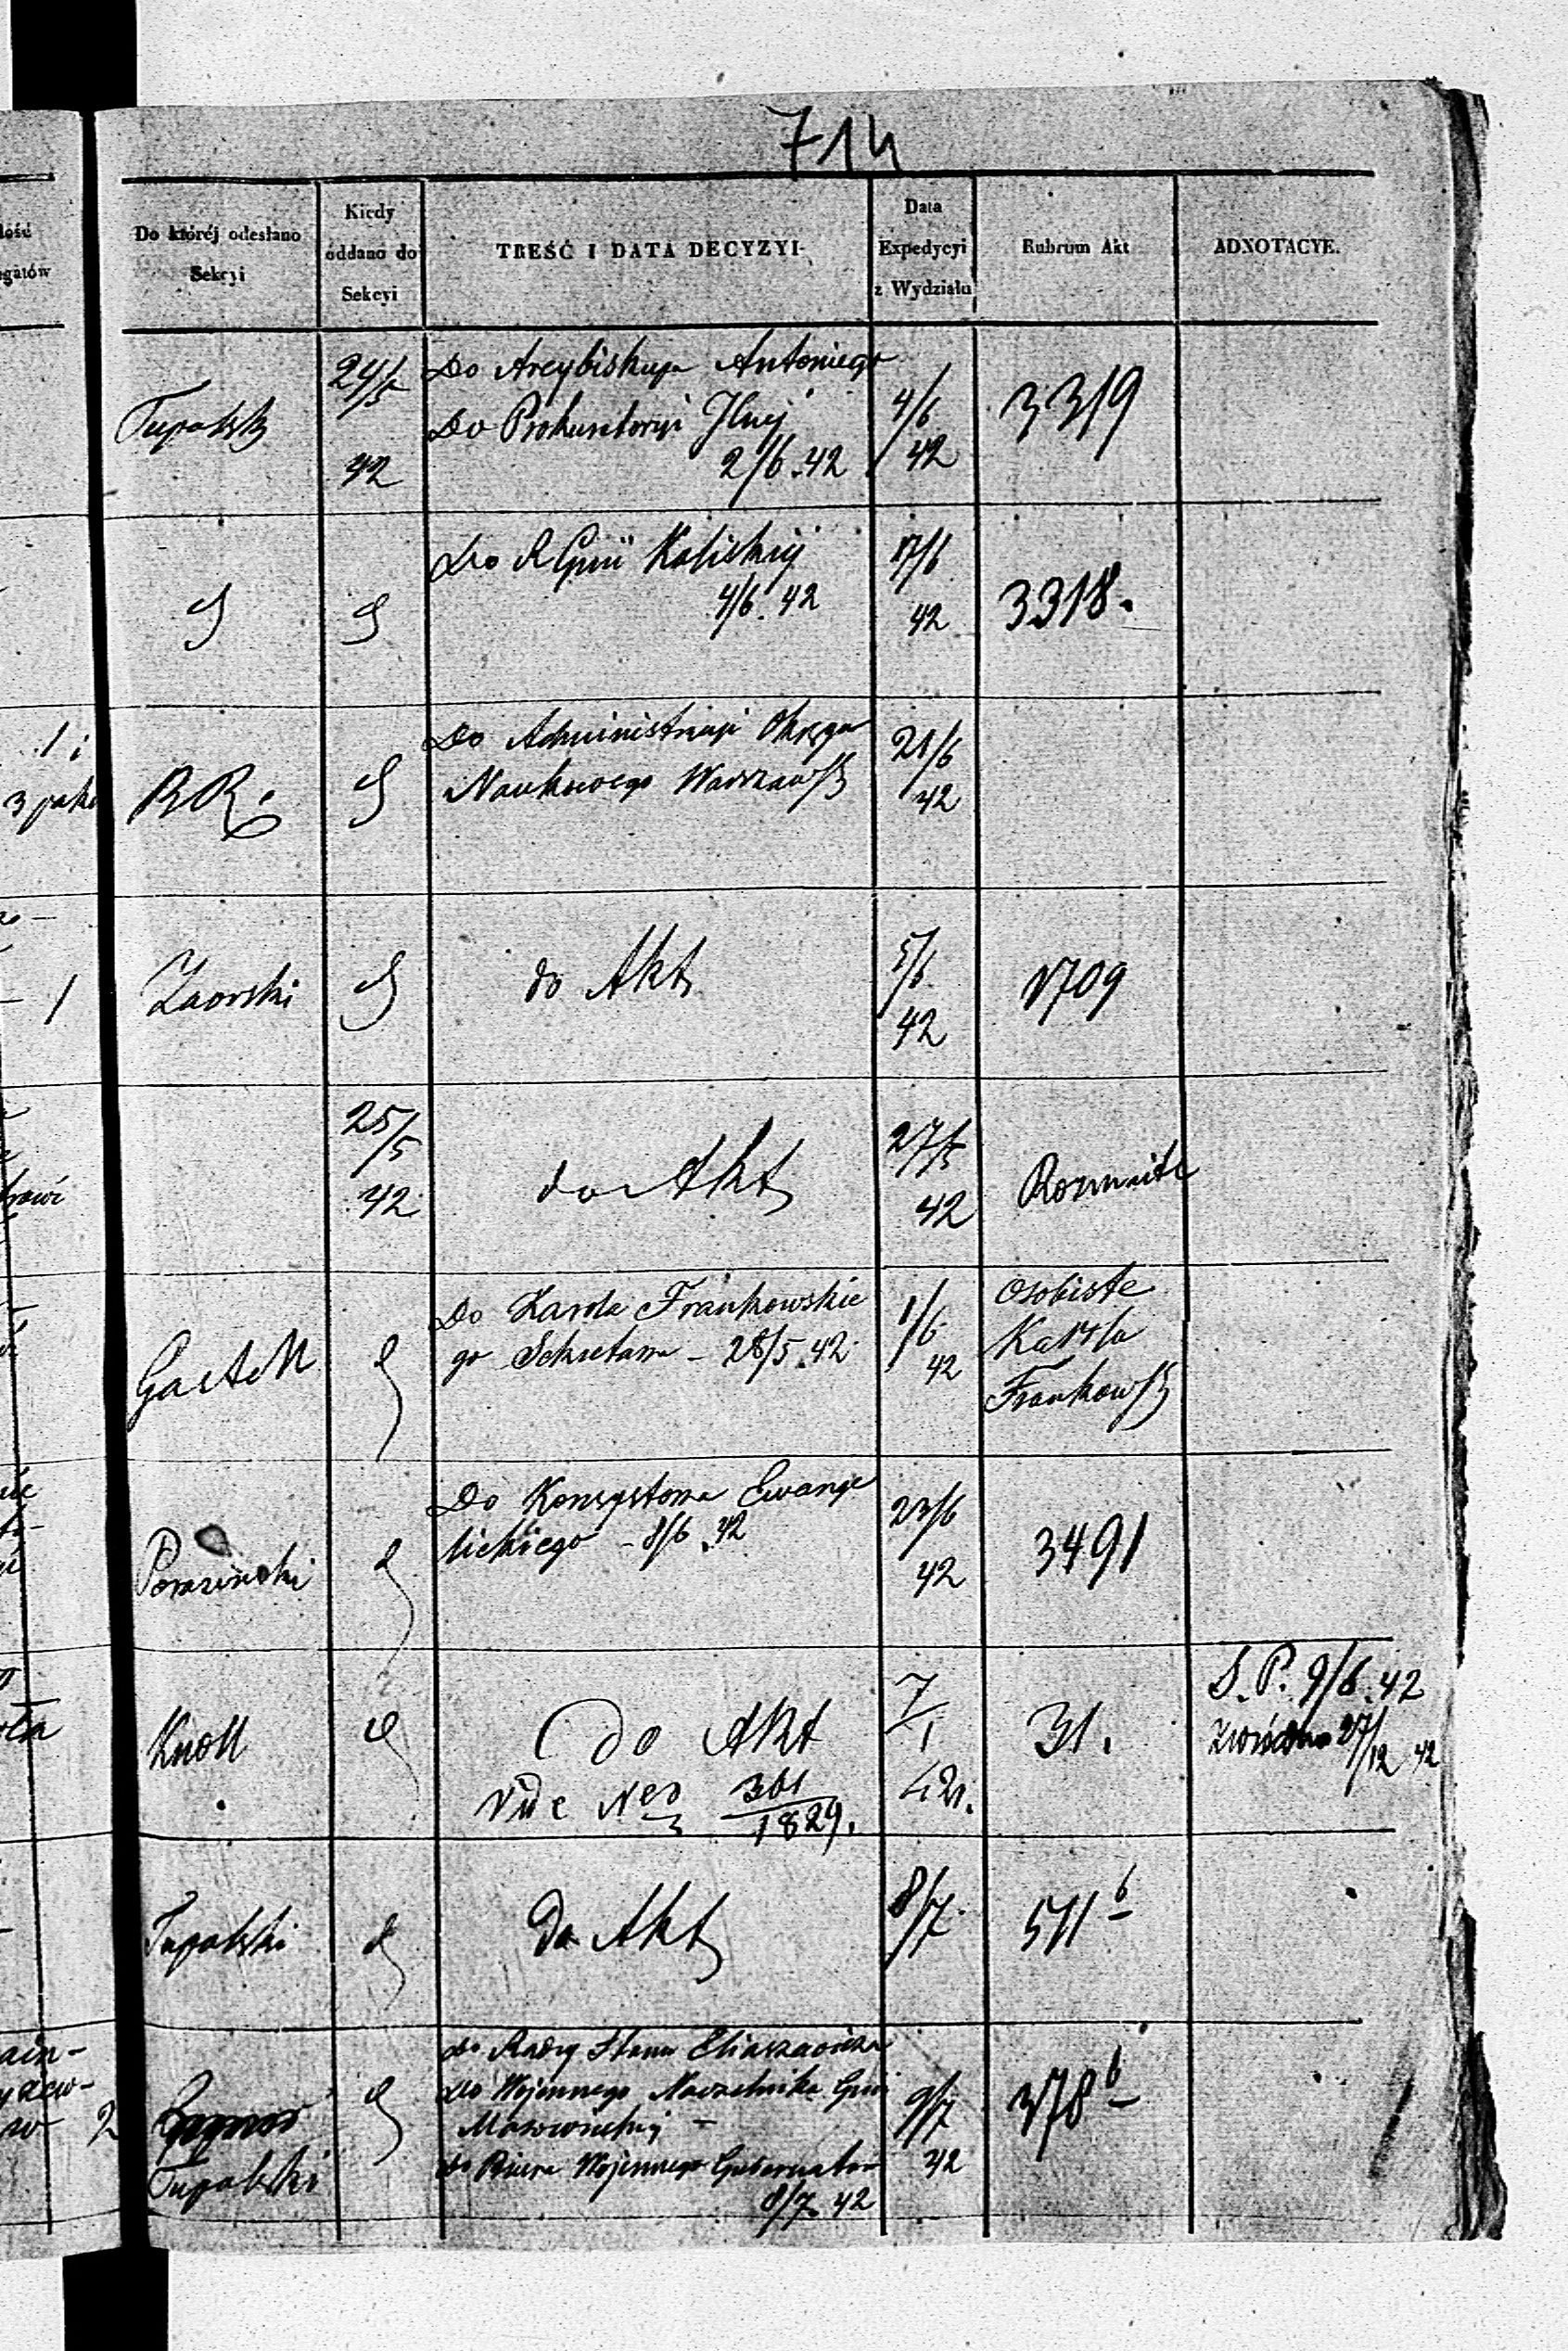 714
Do któréj odesłano
Sekcyi
Kiedy
oddano do
Sekcyi
TREŚĆ I DATA DECYZYI
Data
Expedycyi
z Wydziału
Rubrum Akt
ADNOTACYE.
Tupalski
24/5
42
Do Arcybiskupa Antoniego
Do Prokuratoryi Jlnej
2/6.42
4/6
42
3319
Do R Gnii Kaliskiej
4/6.42
17/6
42
3318.
RR.
Do Administracyi Okręgu
Naukowego Warszaws
21/6
42
Zaorski
do Akt
5/6
42
1709
25/5
42
do Akt
27/5
42
Rozmaite
Do Karola Frankowskie
go Sekretarza - 28/5.42
1/6
42
Osobiste
Karola
Frankows
Do Konsystorza Ewange
lickiego - 8/6.42
23/6
42
3491
Knoll
Do Akt
Vide Nro 361/1829.
7/1
42.
31.
S.P. 9/6.42
zwrócono 27/12 42
Tupalski
Do Akt
8/7.
511 b
Tupalski
do Radcy Stanu Eliaszewicza
do Wojennego Naczelnika Gnii
Mazowieckiej -
do Biura Wojennego Gubernatora
8/7 42
9/7
42
378 b